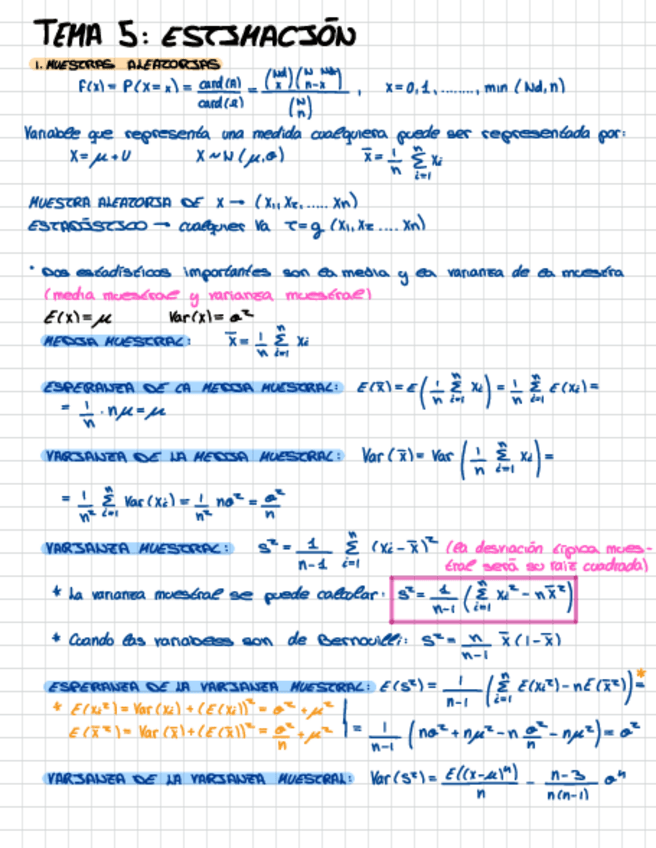 TEMA 5: ESTIMACIÓN
1. MUESTRAS ALEATORIAS
f(x) = P(X=x) = card(A)/card(Ω) = (Nd x)(N-Nd n-x)/(N n), x=0,1,........, min (Nd,n)
Variable que representa una medida cualquiera puede ser representada por:
X = μ + U X ~ N(μ,σ) x̄ = 1/n Σ(i=1, n) xi
MUESTRA ALEATORIA DE X → (X1, X2, ..... Xn)
ESTADÍSTICO → cualquier Va T = g (X1, X2 .... Xn)
* Dos estadísticos importantes son la media y la varianza de la muestra
(media muestral y varianza muestral)
E(x) = μ Var(x) = σ²
MEDIA MUESTRAL: x̄ = 1/n Σ(i=1, n) xi
ESPERANZA DE LA MEDIA MUESTRAL: E(x̄) = E(1/n Σ(i=1, n) xi) = 1/n Σ(i=1, n) E(xi) =
= 1/n · nμ = μ
VARIANZA DE LA MEDIA MUESTRAL: Var(x̄) = Var (1/n Σ(i=1, n) xi) =
= 1/n² Σ(i=1, n) Var(xi) = 1/n² nσ² = σ²/n
VARIANZA MUESTRAL: s² = 1/(n-1) Σ(i=1, n) (xi - x̄)² (la desviación típica mues-
tral será su raíz cuadrada)
* La varianza muestral se puede calcular: s² = 1/(n-1) (Σ(i=1, n) xi² - nx̄²)
* Cuando las variables son de Bernouilli: s² = n/(n-1) x̄(1-x̄)
ESPERANZA DE LA VARIANZA MUESTRAL: E(s²) = 1/(n-1) (Σ(i=1, n) E(xi²) - nE(x̄²)) =*
* E(xi²) = Var(xi) + (E(xi))² = σ² + μ²
E(x̄²) = Var(x̄) + (E(x̄))² = σ²/n + μ²
= 1/(n-1) (nσ² + nμ² - n σ²/n - nμ²) = σ²
VARIANZA DE LA VARIANZA MUESTRAL: Var(s²) = E((x-μ)⁴)/n - (n-3)/(n(n-1)) σ⁴